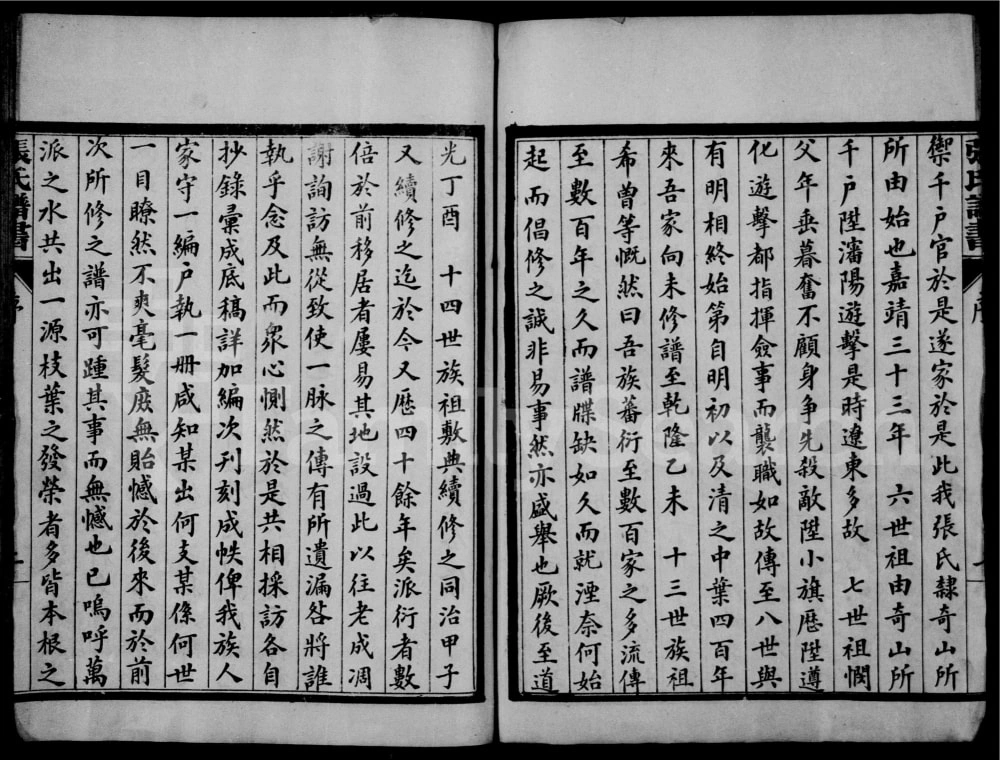 禦千户官於是遂家於是此我張氏隸奇山所
所由始也嘉靖三十三年 六世祖由奇山所
千户陞瀋陽遊擊是時遼東多故 七世祖憫
父年垂暮奮不顧身争先殺敵陞小旗歷陞遵
化遊擊都指揮僉事而襲職如故傳至八世與
有明相終始第自明初以及清之中葉四百年
來吾家向未修譜至乾隆乙未 十三世族祖
希曾等慨然曰吾族蕃衍至數百家之多流傳
至數百年之久而譜牒缺如久而就湮奈何始
起而倡修之誠非易事然亦盛舉也厥後至道
張氏譜書
序
光丁酉 十四世族祖敷典續修之同治甲子
又續修之迄於今又歷四十餘年矣派衍者數
倍於前移居者屢易其地設過此以往老成凋
謝詢訪無從致使一脉之傳有所遺漏咎將誰
執乎念及此而衆心惻然於是共相採訪各自
抄錄彙成底稿詳加編次刊刻成帙俾我族人
家守一編户執一册咸知某出何支某係何世
一目瞭然不爽毫髮庶無貽憾於後來而於前
次所修之譜亦可踵其事而無憾也已嗚呼萬
派之水共出一源枝葉之發榮者多皆本根之
張氏譜書
序